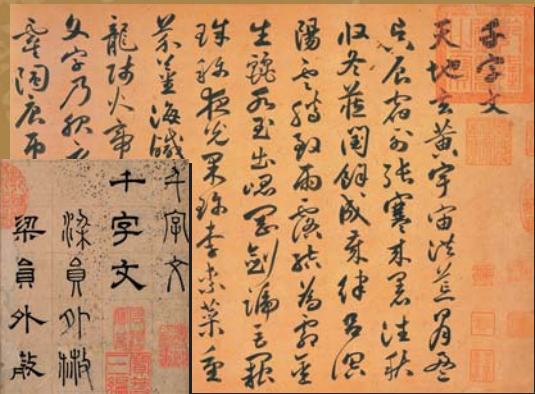 千字文
天地玄黃宇宙洪荒日月盈
昃辰宿列張寒來暑往秋
收冬藏閏餘成歲律呂調
陽雲騰致雨露結為霜金
生麗水玉出崑岡劍號巨闕
珠稱夜光果珍李柰菜重
芥薑海鹹
龍師火帝
文字乃服衣
虞陶唐弔
千字文
千字文
梁員外散
梁員外散